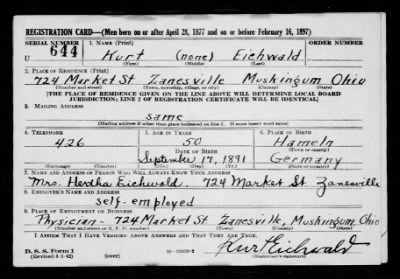 REGISTRATION CARD—(Men born on or after April 28, 1877 and on or before February 16, 1897)
SERIAL NUMBER 1. NAME (Print) ORDER NUMBER
U 644 Kurt (none) Eichwald
(First) (Middle) (Last)
2. PLACE OF RESIDENCE (Print)
724 Market St Zanesville Muskingum Ohio
(Number and street) (Town, township, village, or city) (County) (State)
[THE PLACE OF RESIDENCE GIVEN ON THE LINE ABOVE WILL DETERMINE LOCAL BOARD
JURISDICTION; LINE 2 OF REGISTRATION CERTIFICATE WILL BE IDENTICAL]
3. MAILING ADDRESS
same
(Mailing address if other than place indicated on line 2. If same insert word same)
4. TELEPHONE 5. AGE IN YEARS 6. PLACE OF BIRTH
426 50 Hameln
DATE OF BIRTH (Town or county)
September 17, 1891 Germany
(Mo.) (Day) (Yr.) (State or country)
7. NAME AND ADDRESS OF PERSON WHO WILL ALWAYS KNOW YOUR ADDRESS
Mrs. Hertha Eichwald. 724 Market St Zanesville
8. EMPLOYER'S NAME AND ADDRESS
self-employed
9. PLACE OF EMPLOYMENT OR BUSINESS
Physician - 724 Market St. Zanesville, Muskingum, Ohio
(Number and street or R. F. D. number) (Town) (County) (State)
I AFFIRM THAT I HAVE VERIFIED ABOVE ANSWERS AND THAT THEY ARE TRUE.
D. S. S. Form 1
(Revised 4-1-42) (over) Kurt Eichwald